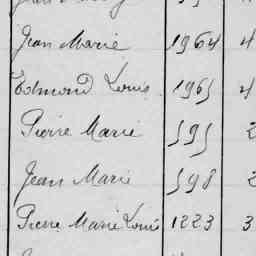 Jean Marie 1964 4
Edmond Louis 1965 4
Pierre Marie 595 2
Jean Marie 598 2
Pierre Marie Louis 1223 3